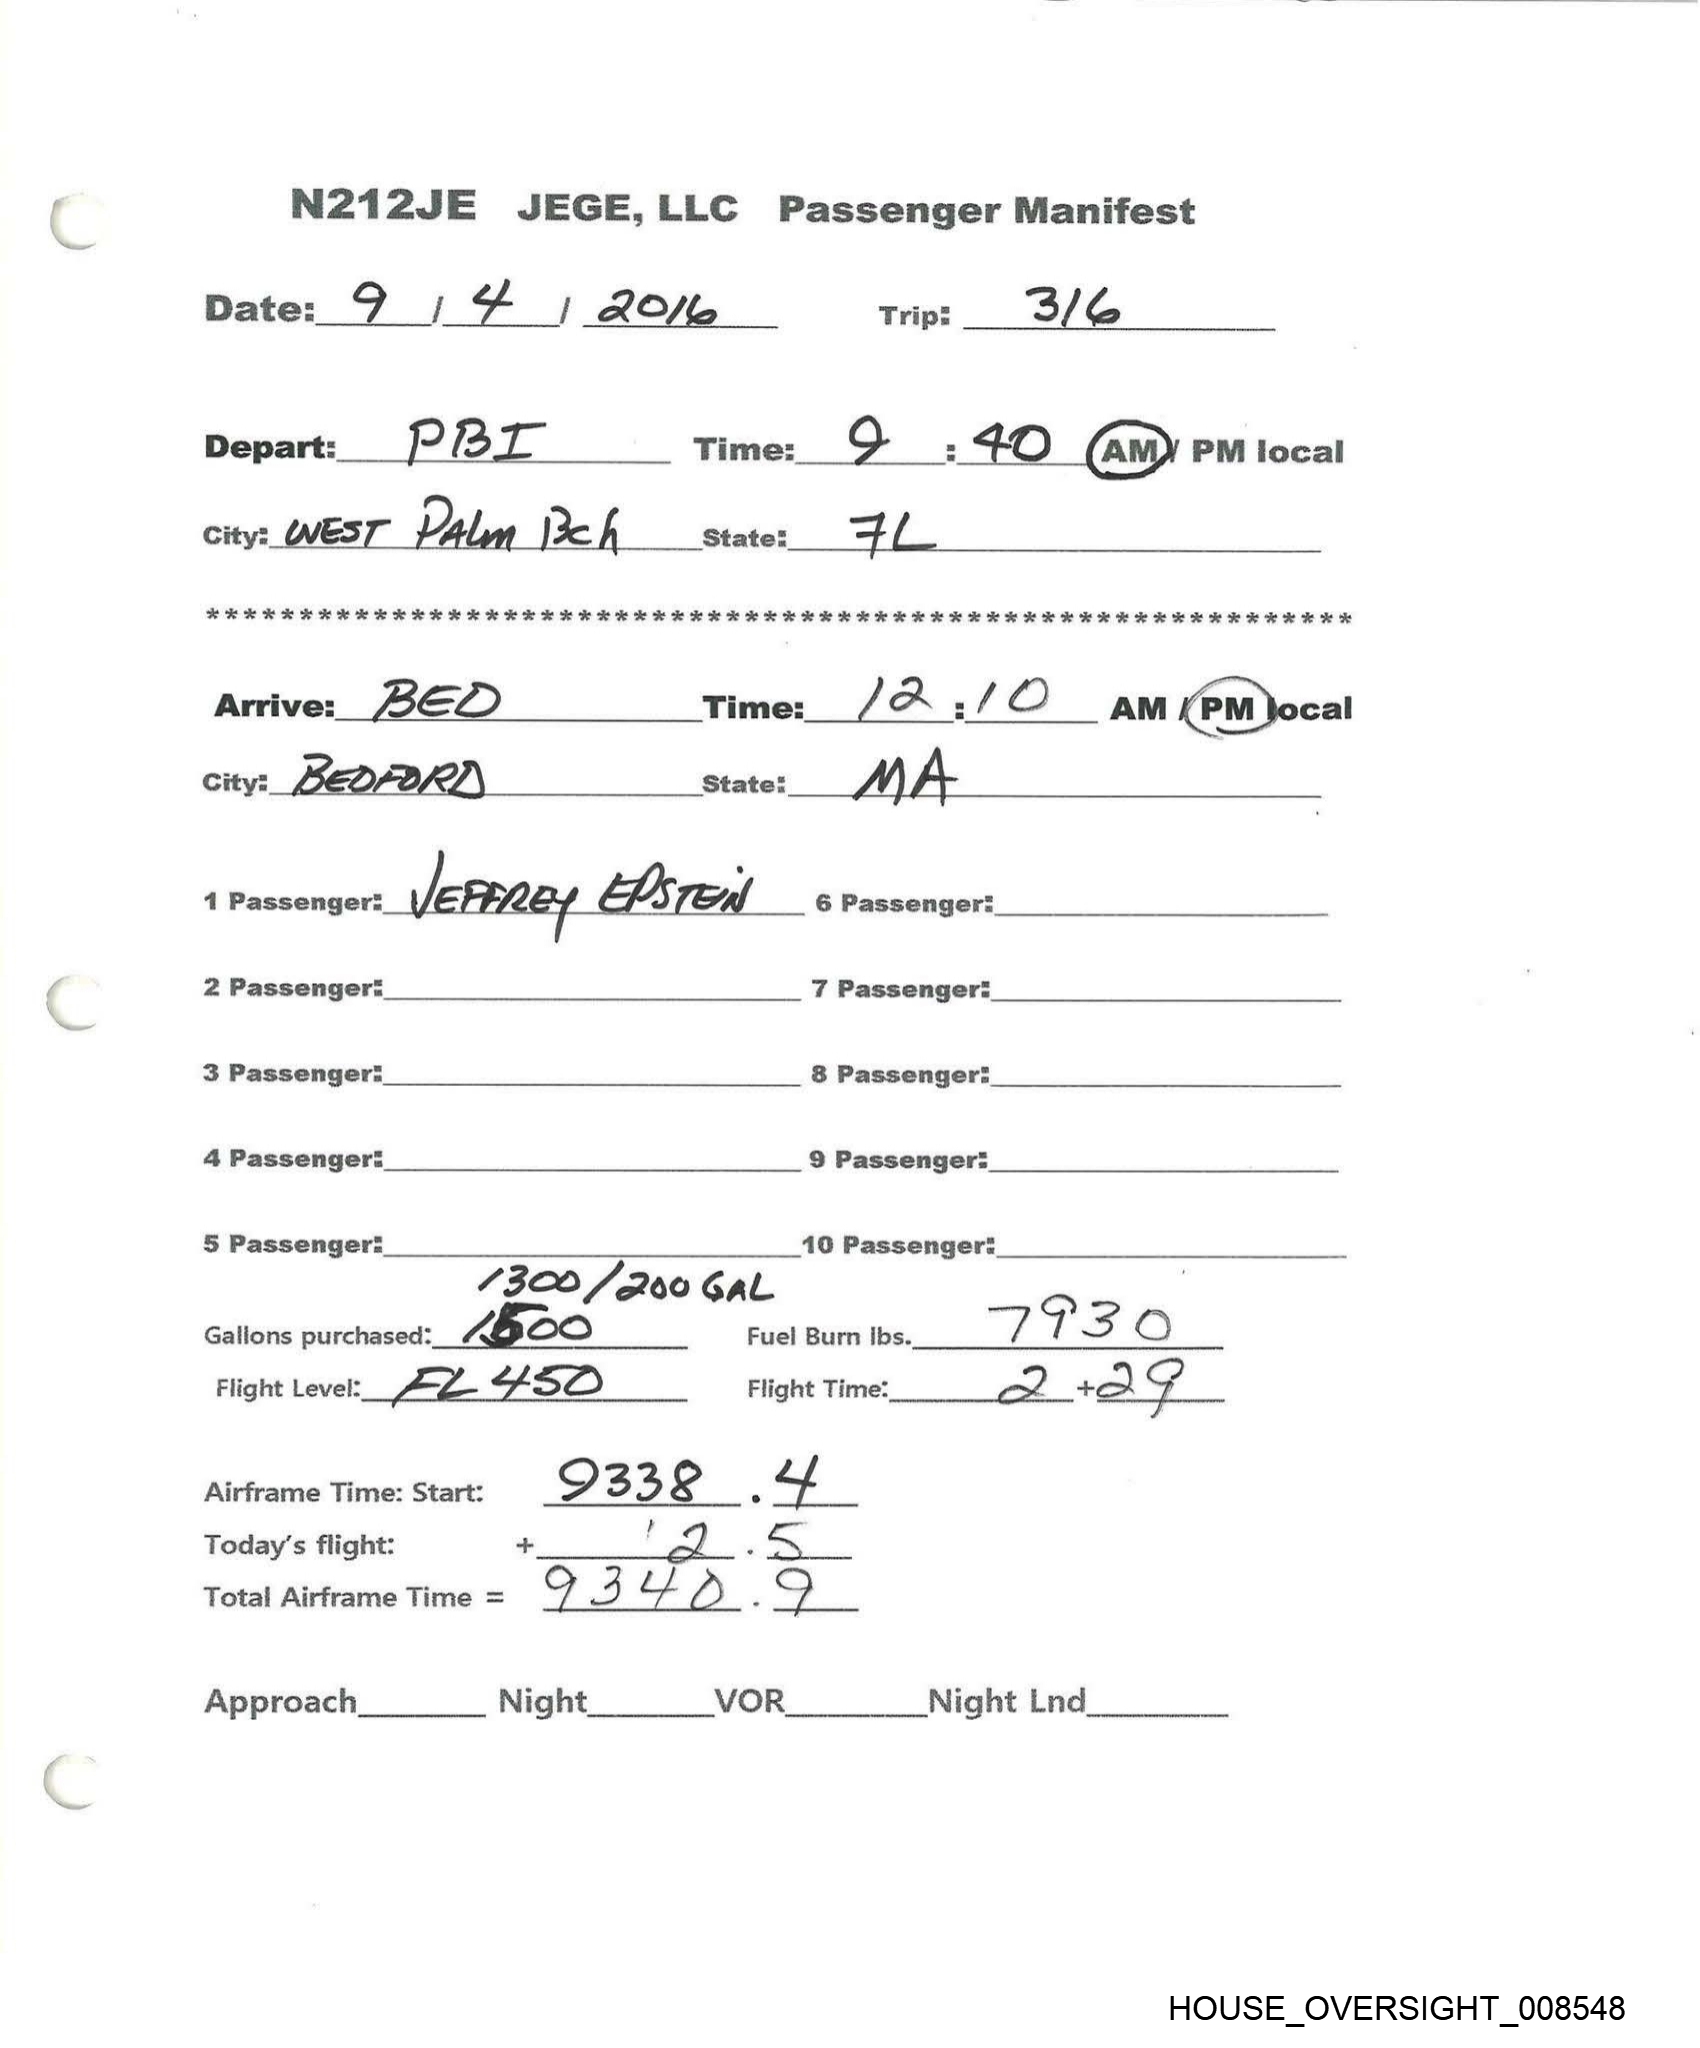 N212JE JEGE, LLC Passenger Manifest
Date: 9 / 4 / 2016 Trip: 316
Depart: PBI Time: 9 : 40 AM / PM local
City: WEST PALM Bch State: FL
**************************************************************
Arrive: BED Time: 12 : 10 AM / PM local
City: BEDFORD State: MA
1 Passenger: JEFFREY EPSTEIN 6 Passenger:
2 Passenger: 7 Passenger:
3 Passenger: 8 Passenger:
4 Passenger: 9 Passenger:
5 Passenger: 10 Passenger:
1300/200 GAL
Gallons purchased: 1500 Fuel Burn lbs. 7930
Flight Level: FL 450 Flight Time: 2 + 29
Airframe Time: Start: 9338 . 4
Today's flight: + 2 . 5
Total Airframe Time = 9340 . 9
Approach Night VOR Night Lnd
HOUSE_OVERSIGHT_008548